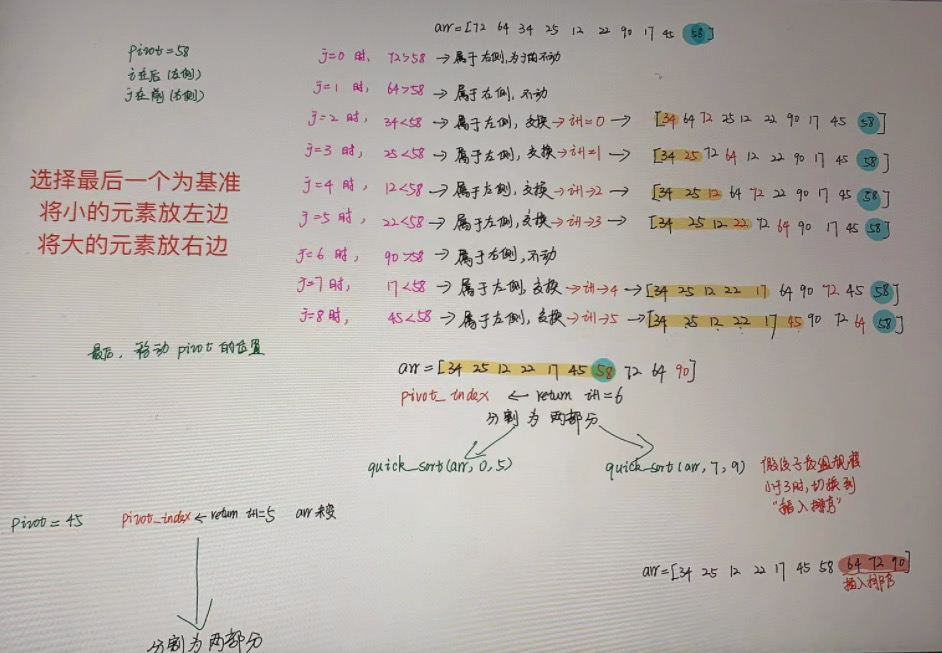 arr=[72 64 34 25 12 22 90 17 45 58]
pivot=58
i在后(左侧)
j在前(右侧)
j=0 时, 72>58 → 属于右侧,
j=1 时, 64>58 → 属于右侧, 不动
j=2 时, 34<58 → 属于左侧, 交换 → i+1=0 → [34 64 72 25 12 22 90 17 45 58]
j=3 时, 25<58 → 属于左侧, 交换 → i+1=1 → [34 25 72 64 12 22 90 17 45 58]
j=4 时, 12<58 → 属于左侧, 交换 → i+1→2 → [34 25 12 64 72 22 90 17 45 58]
j=5 时, 22<58 → 属于左侧, 交换 → i+1→3 → [34 25 12 22 72 64 90 17 45 58]
j=6 时, 90>58 → 属于右侧, 不动
j=7时, 17<58 → 属于左侧, 交换 → i+1→4 → [34 25 12 22 17 64 90 72 45 58]
j=8时, 45<58 → 属于左侧, 交换 → i+1→5 → [34 25 12 22 17 45 90 72 64 58]
选择最后一个为基准
将小的元素放左边
将大的元素放右边
最后, 移动 pivot 的位置
arr=[34 25 12 22 17 45 58 72 64 90]
pivot_index ← return i+1=6
分割为两部分
quick_sort(arr, 0, 5)
quick_sort(arr, 7, 9)
假设子数组规模
小于3时, 切换到
"插入排序"
pivot=45 pivot_index ← return i+1=5 arr未变
arr=[34 25 12 22 17 45 58 64 72 90]
插入排序
分割为两部分